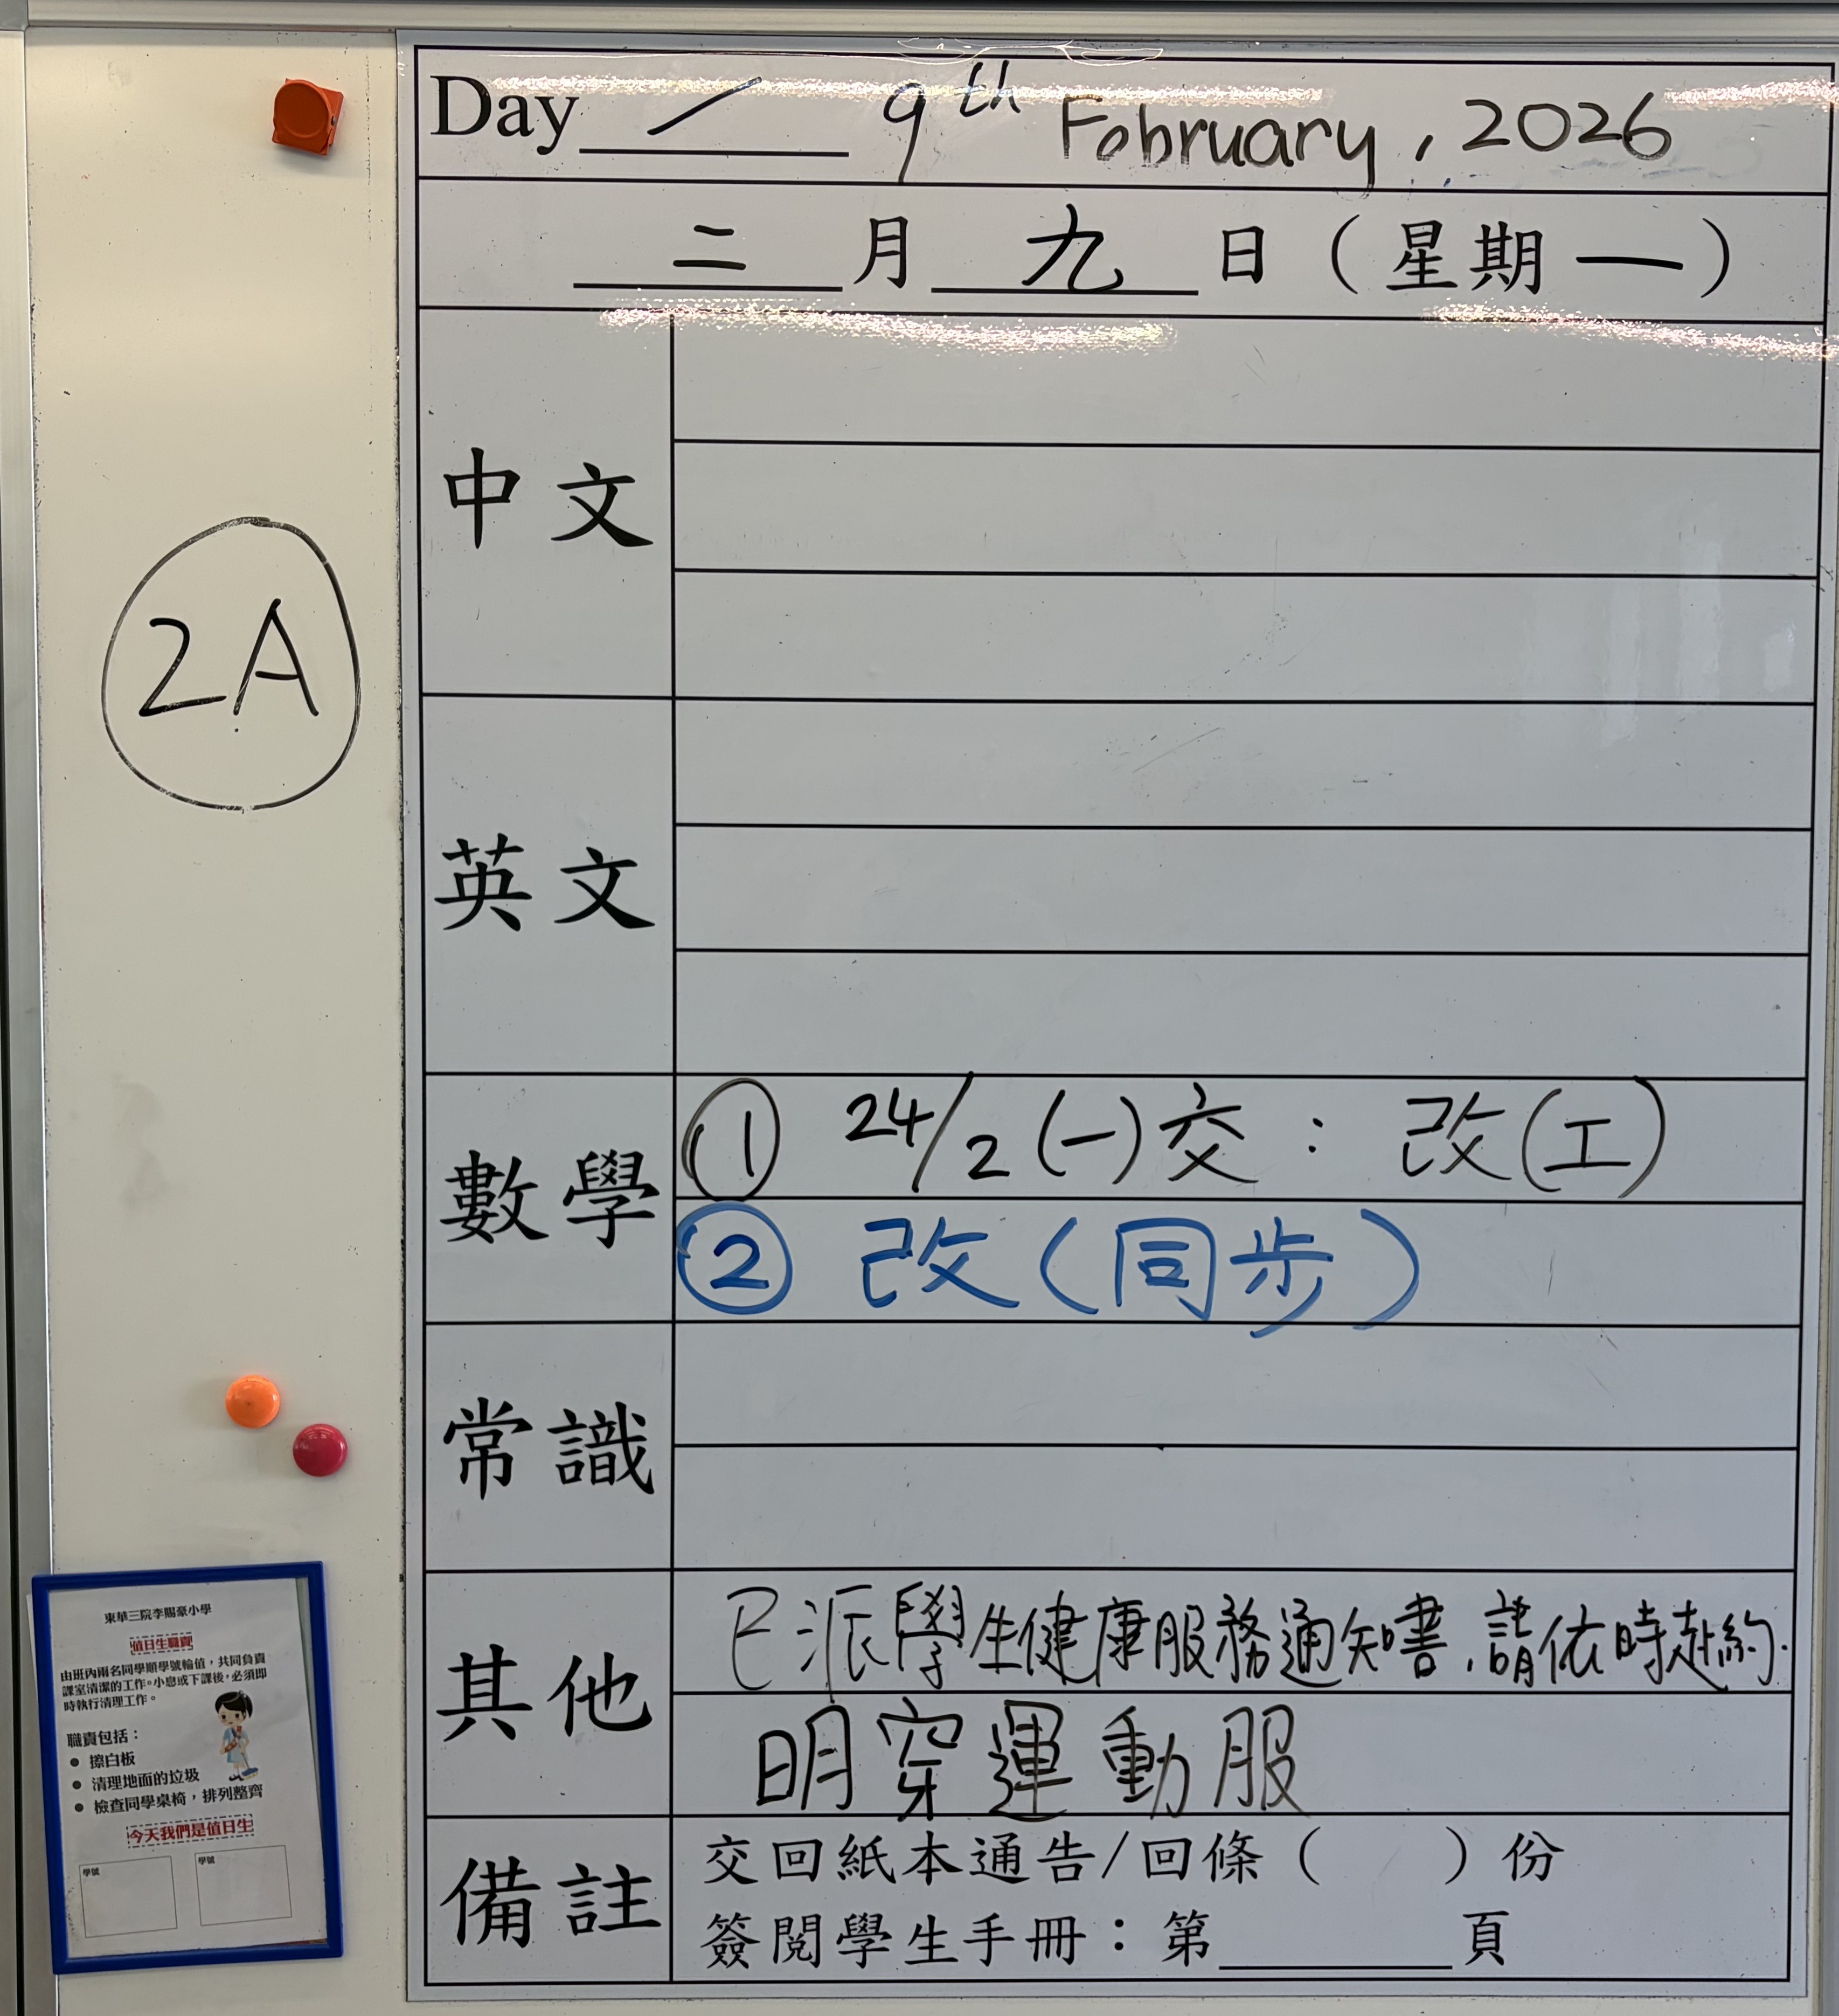 Day / 9th February, 2026
二 月 九 日 (星期一)
2A
中文
英文
數學
① 24/2 (一) 交 : 改(工)
② 改(同步)
常識
其他
已派學生健康服務通知書,請依時赴約.
明穿運動服
備註
交回紙本通告/回條( )份
簽閱學生手冊:第______頁
東華三院李賜豪小學
值日生職責
由班內兩名同學順學號輪值,共同負責
課室清潔的工作。小息或下課後,必須即
時執行清理工作。
職責包括:
● 擦白板
● 清理地面的垃圾
● 檢查同學桌椅,排列整齊
今天我們是值日生
學號
學號